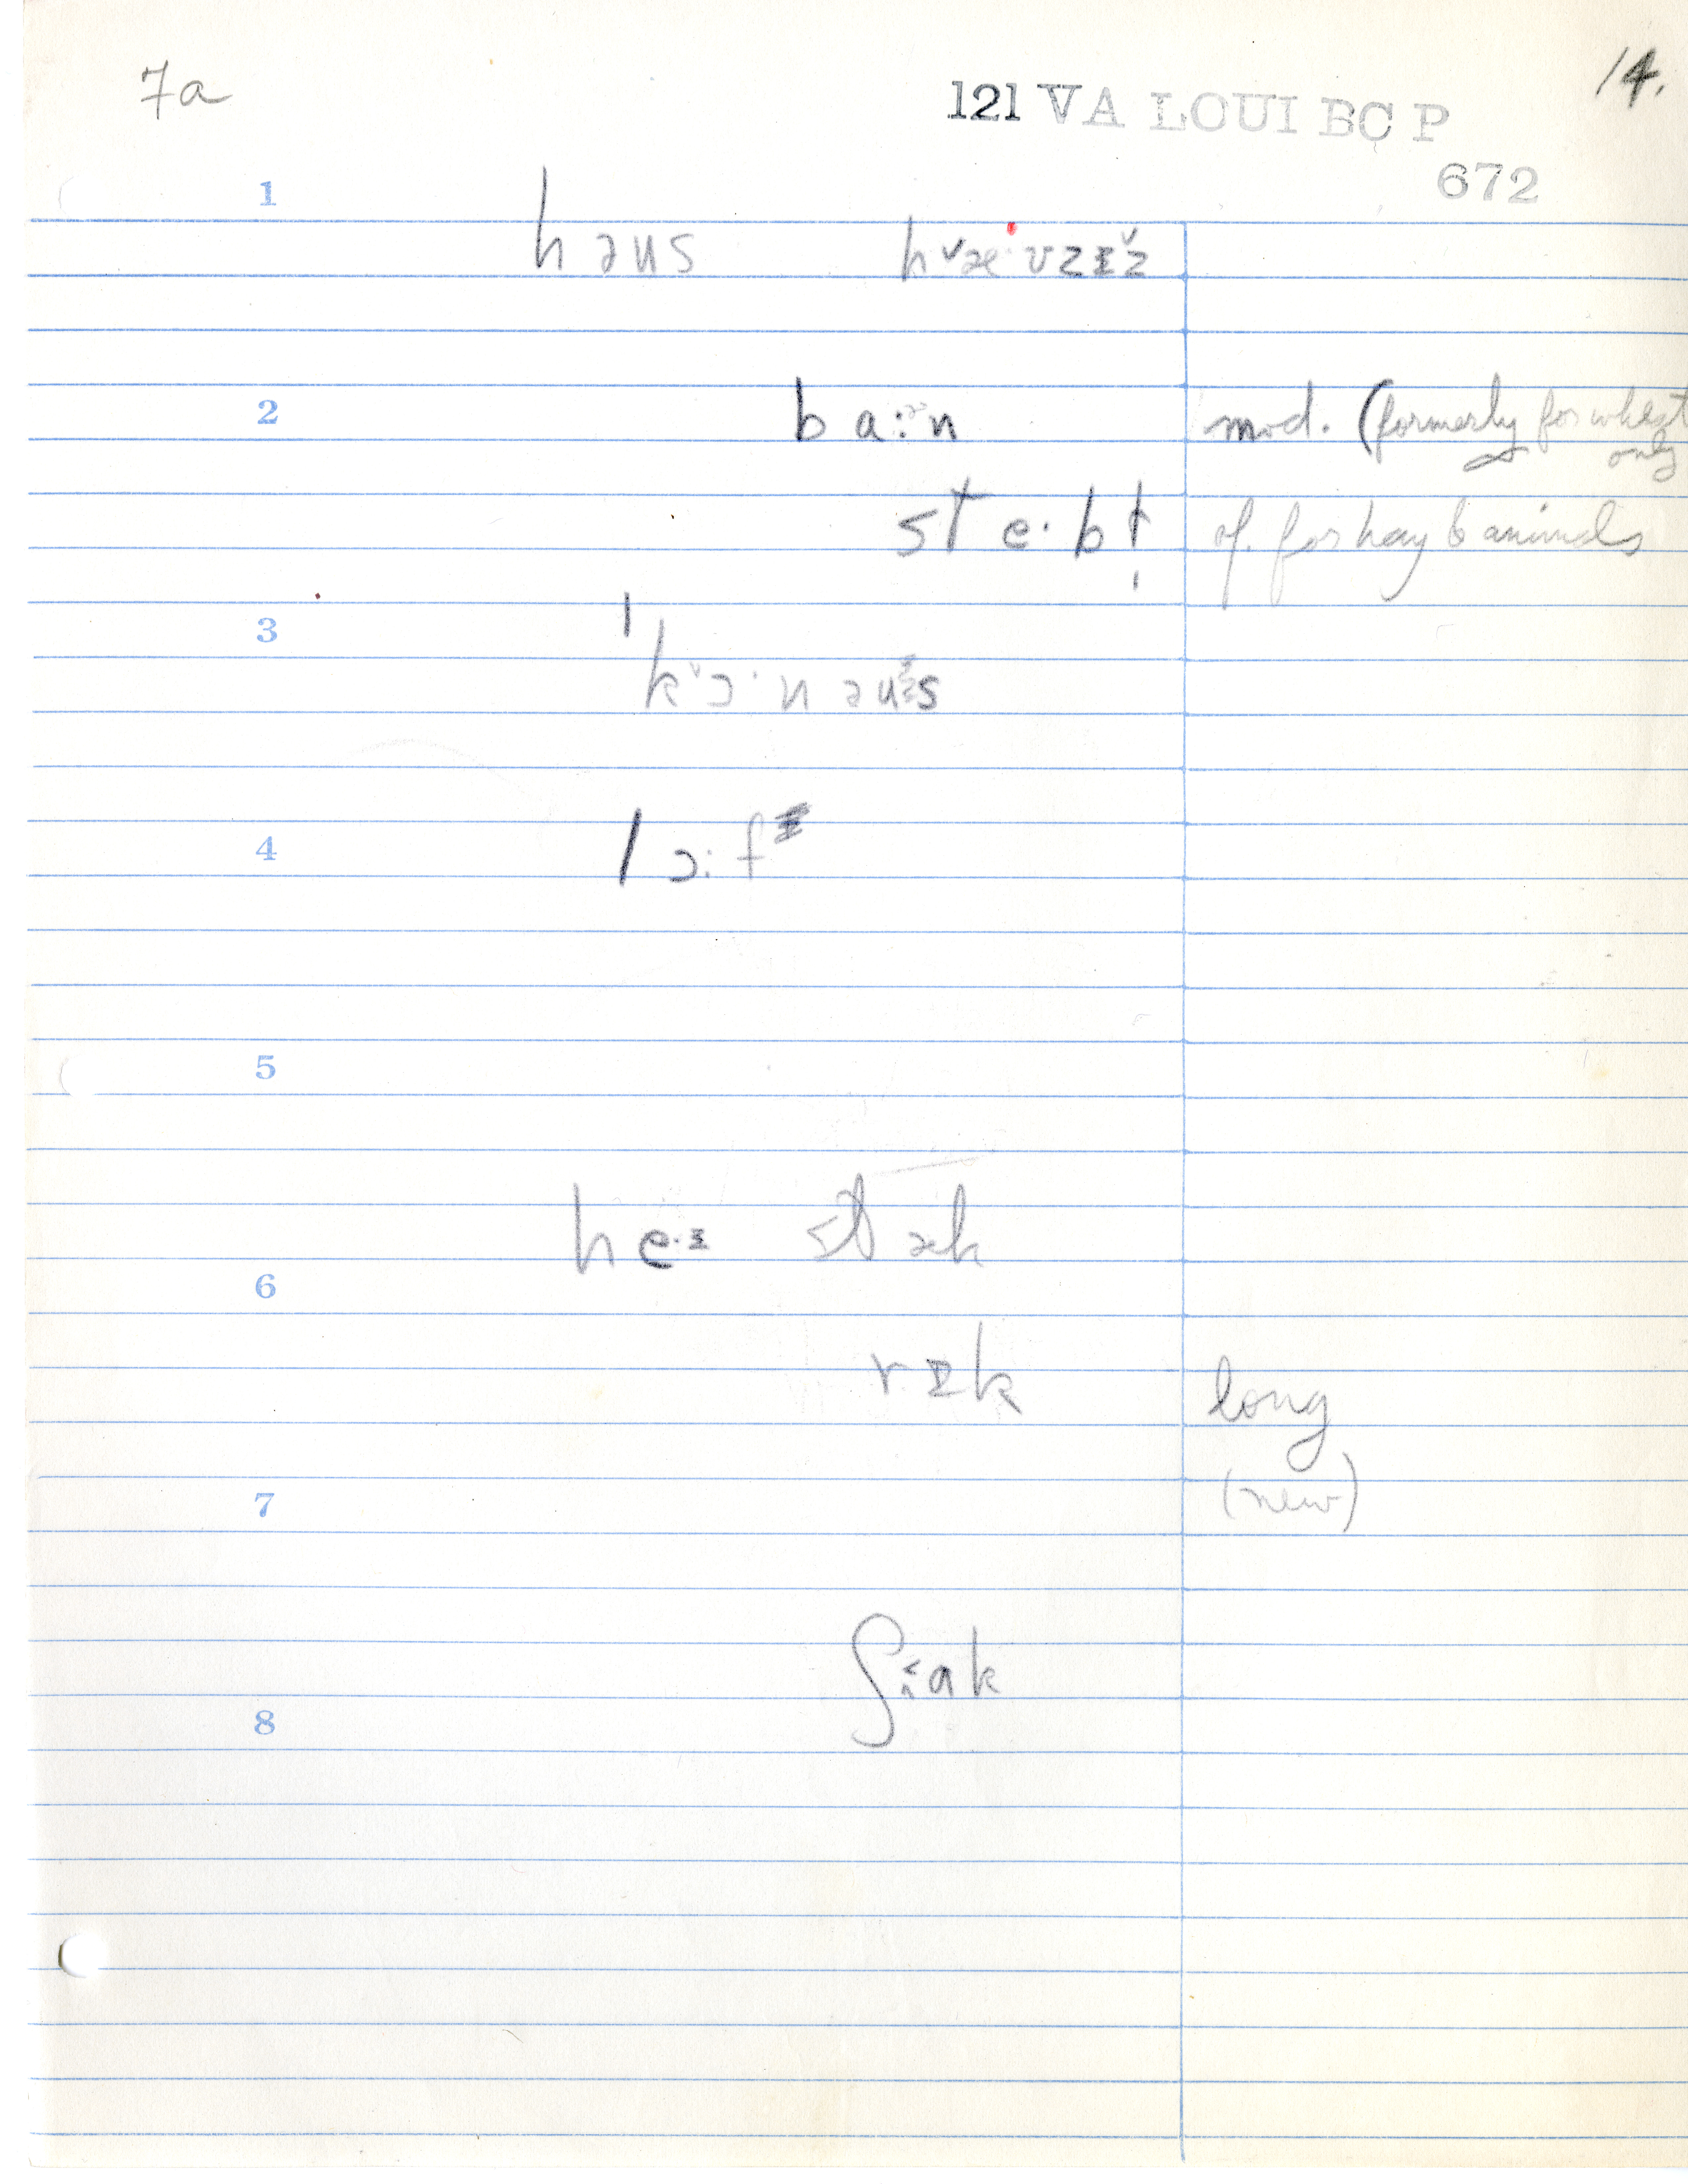 7a
14.
121 VA LOUI BC P
672
1
həus h˅æ·ʊzɪž
2
ba:ᵊn mod. (formerly for wheat only
ste·bɫ of. for hay & animals
3
ˈk˅ɔ·nəus
4
lɔ:fᵻ
5
he·ɪ stæk
6
rɪk long
(new)
7
ʃæk
8